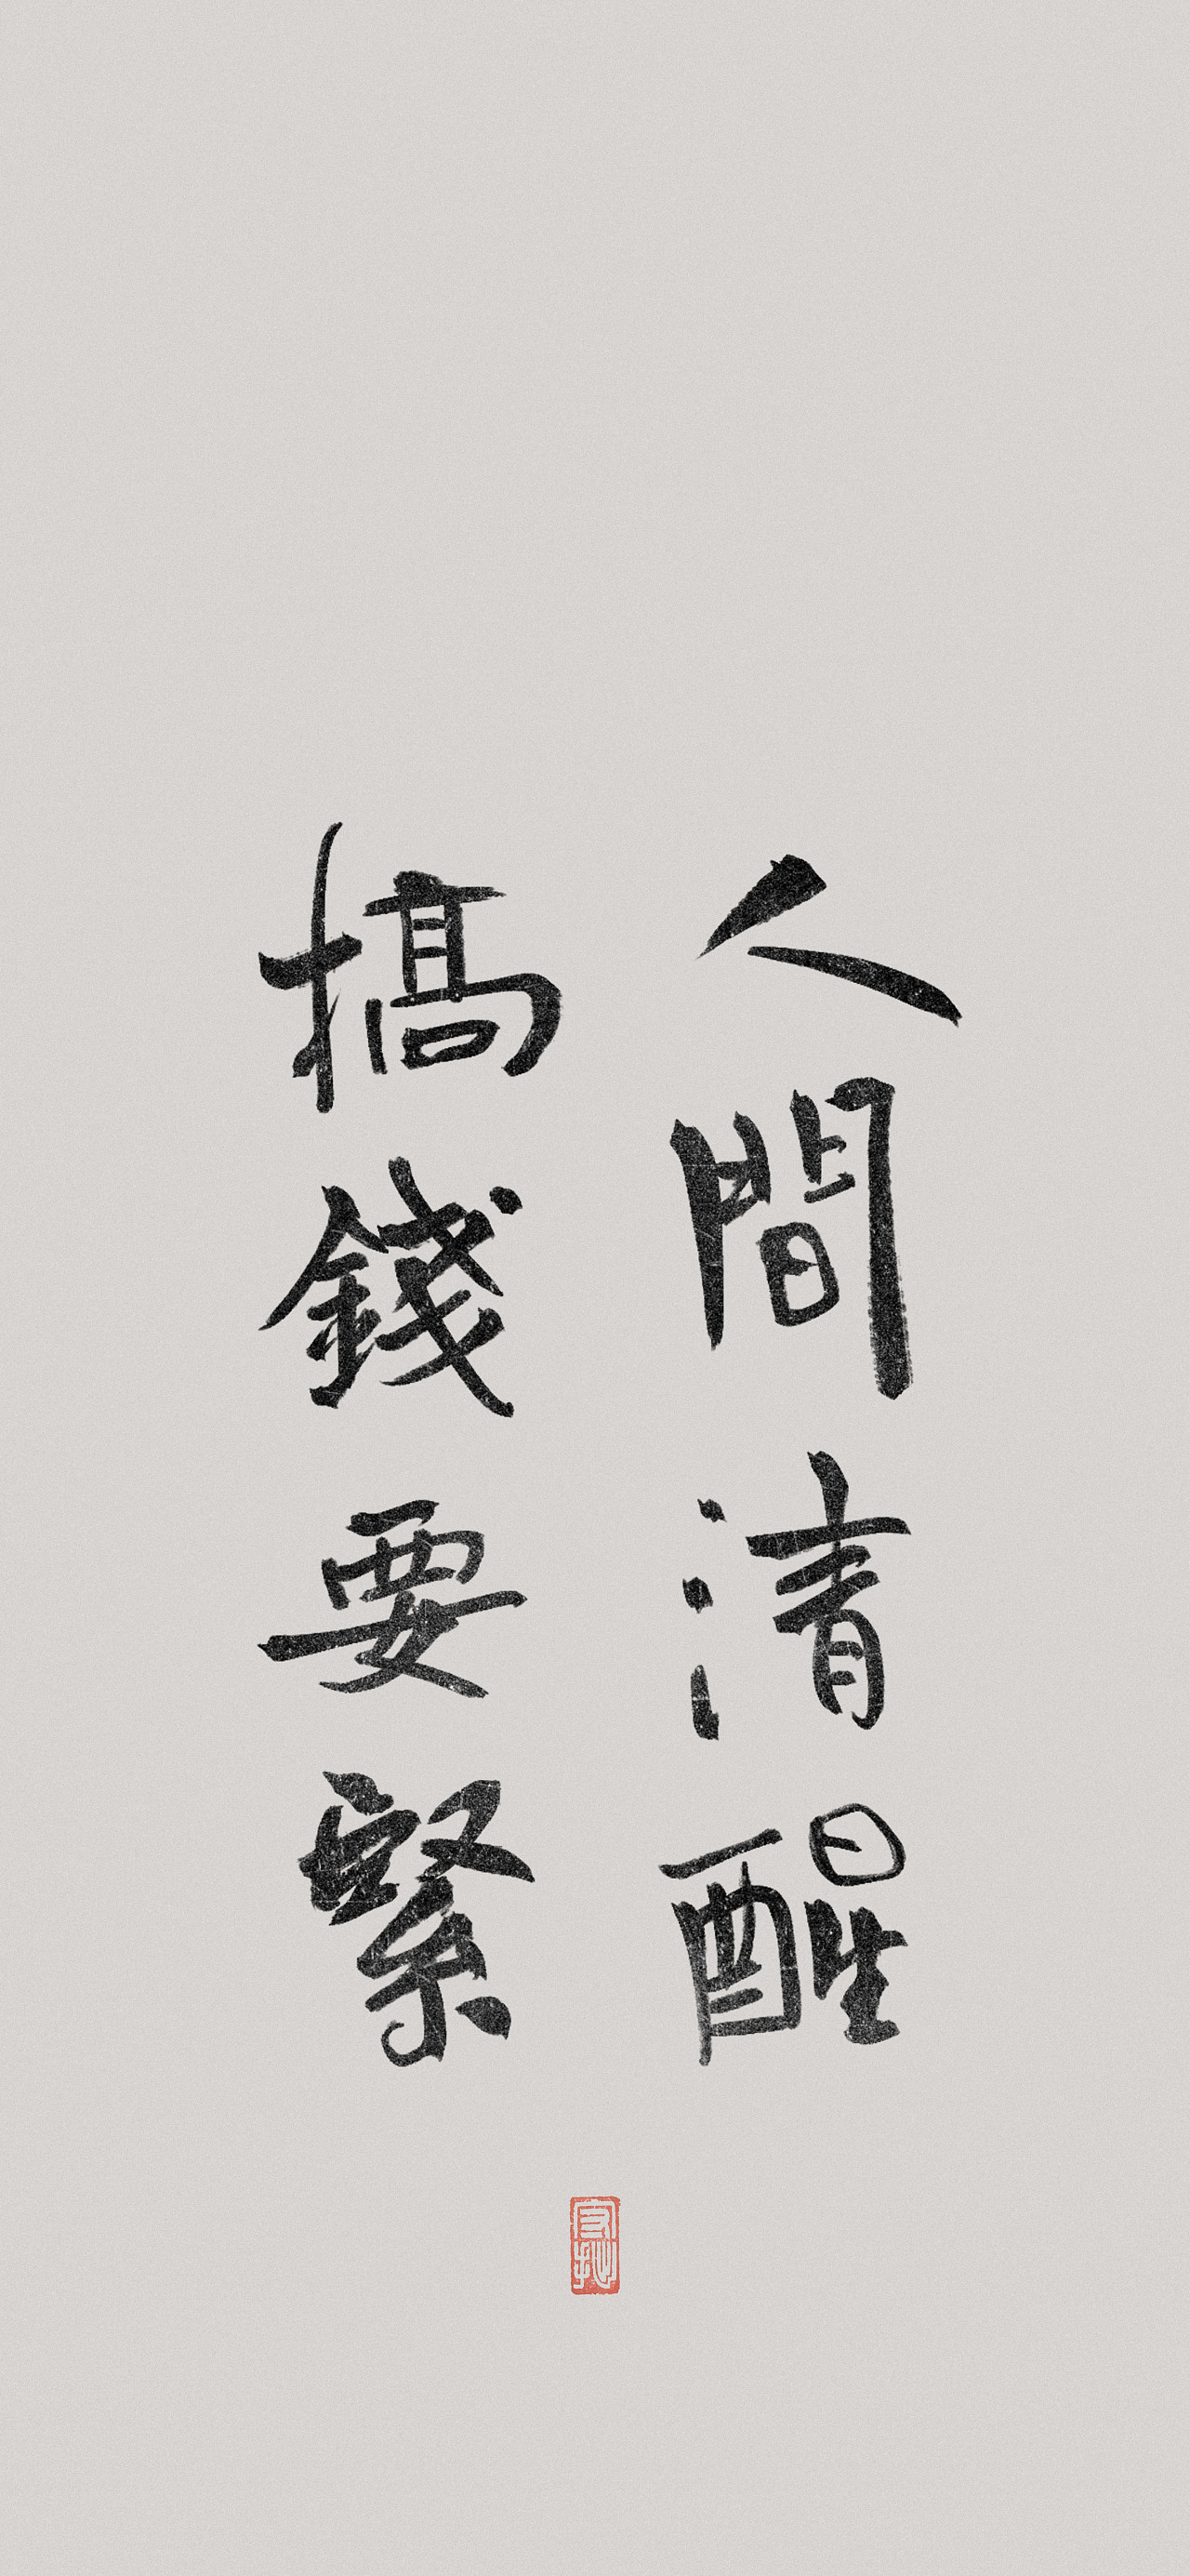 人間清醒
搞錢要緊